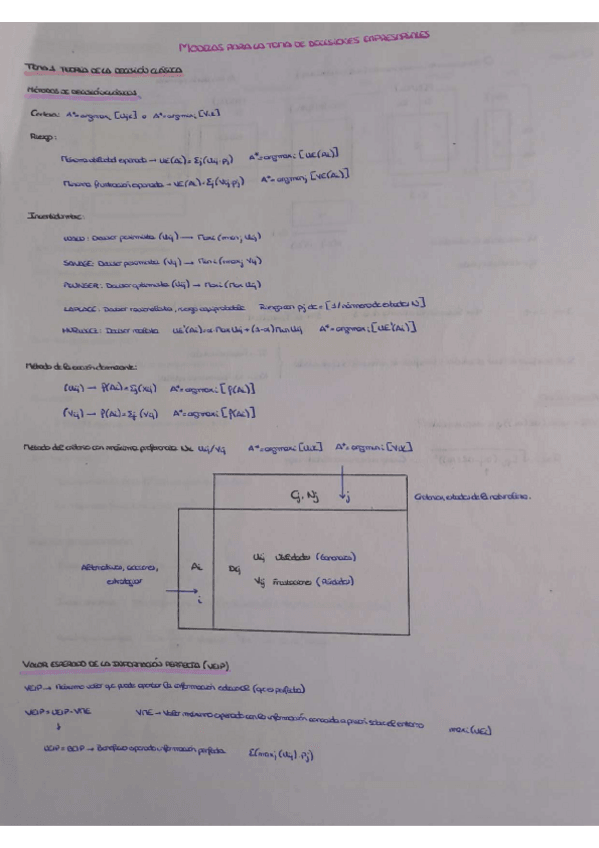 MODELOS PARA LA TOMA DE DECISIONES EMPRESARIALES
TEMA 1 TEORÍA DE LA DECISIÓN CLÁSICA
MÉTODOS DE DECISIÓN CLÁSICOS
Certeza: A*=argmax
Riesgo:
Máxima utilidad esperada → UE(Ai)=Σj(Uij·pj) A*=argmaxi[UE(Ai)]
Mínima frustración esperada → VE(Ai)=Σj(Vij·pj) A*=argmini[VE(Ai)]
Incertidumbre:
WALD: Decisor pesimista (Uij) → Maxi(minj Uij)
SAVAGE: Decisor pesimista (Vij) → Mini(maxj Vij)
Decisor optimista (Uij) → Maxi(Max Uij)
LAPLACE: Decisor racionalista, riesgo equiprobable pj de = [1/número de estados N]
HURWICZ: Decisor realista UE'(Ai)=α Max Uij+(1-α) Min Uij A*=argmaxi[UE'(Ai)]
Método de la acción dominante:
(Uij) → f(Ai)=Σj(Xij) A*=argmaxi[f(Ai)]
(Vij) → f(Ai)=Σj(Vij) A*=argmaxi[f(Ai)]
Método del criterio con máxima preferencia Uij/Vij
Cj, Nj j
Criterios, estados de la naturaleza.
Alternativas, acciones,
estrategias
Ai
i
Dij
Uij Utilidades (Ganancias)
Vij Frustraciones (Pérdidas)
VALOR ESPERADO DE LA INFORMACIÓN PERFECTA (VEIP)
VEIP → Máximo valor que puede aportar la información adicional (que es perfecta)
VNE → Valor máximo esperado con la información conocida a priori sobre el entorno maxi(UEi)
→ Beneficio esperado información perfecta. E(maxj(Uij)·Pj)